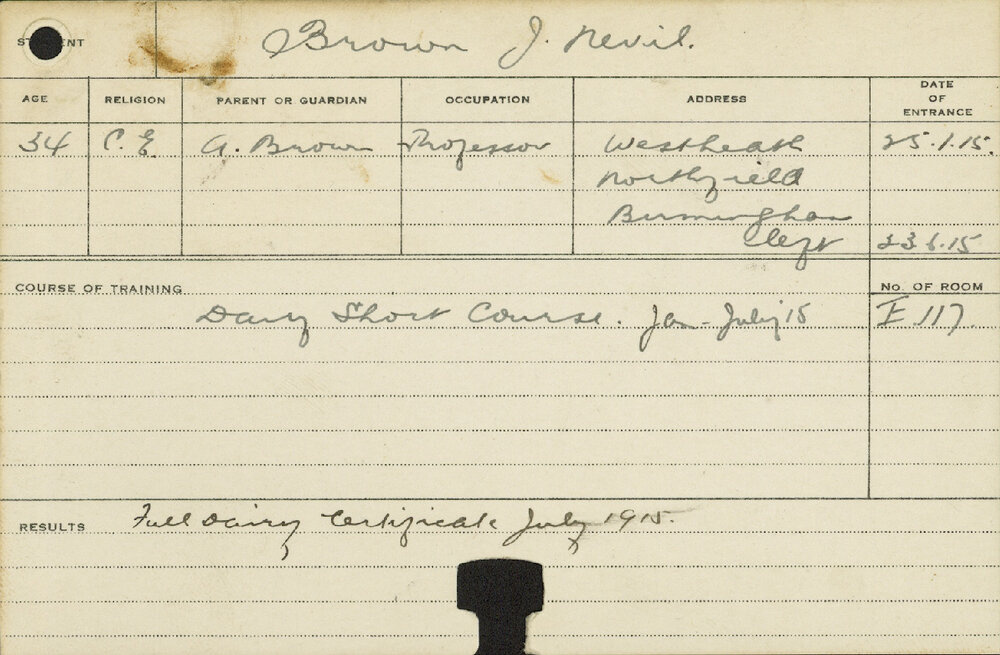 STUDENT Brown J. Nevil.
AGE RELIGION PARENT OR GUARDIAN OCCUPATION ADDRESS DATE OF ENTRANCE
34 C.E. A. Brown Professor Westheath 25.1.15.
Northfield
Birmingham
Left 23.6.15
COURSE OF TRAINING No. OF ROOM
Dairy Short Course. Jan - July 15 I.117.
RESULTS Full Dairy Certificate July 1915.